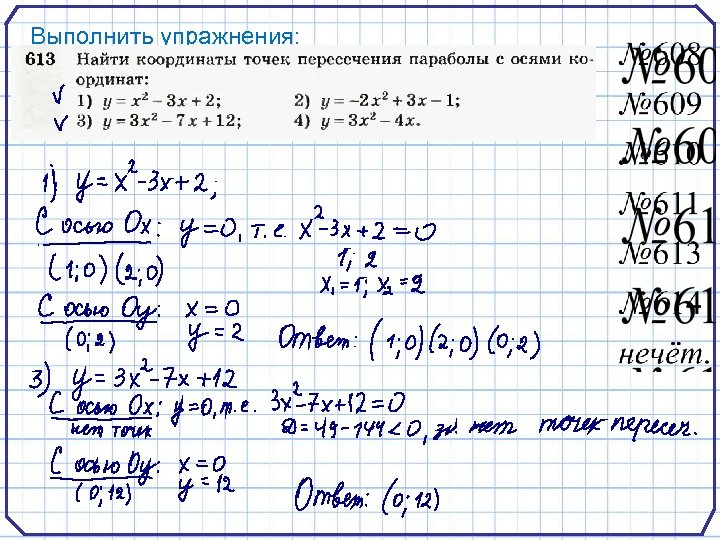 Выполнить упражнения:
613 Найти координаты точек пересечения параболы с осями ко-
ординат:
1) y = x² − 3x + 2; 2) y = −2x² + 3x − 1;
3) y = 3x² − 7x + 12; 4) y = 3x² − 4x.
№608
№609
№610
№611
№613
№614
нечёт.
1) y = x² - 3x + 2;
С осью Ox: y = 0, т.е. x² - 3x + 2 = 0
1; 2
(1; 0) (2; 0) x₁ = 1; x₂ = 2
С осью Oy: x = 0
(0; 2) y = 2 Ответ: (1; 0) (2; 0) (0; 2)
3) y = 3x² - 7x + 12
С осью Ox: y = 0, т.е. 3x² - 7x + 12 = 0
нет точек D = 49 - 144 < 0, зн. нет точек пересеч.
С осью Oy: x = 0
(0; 12) y = 12 Ответ: (0; 12)